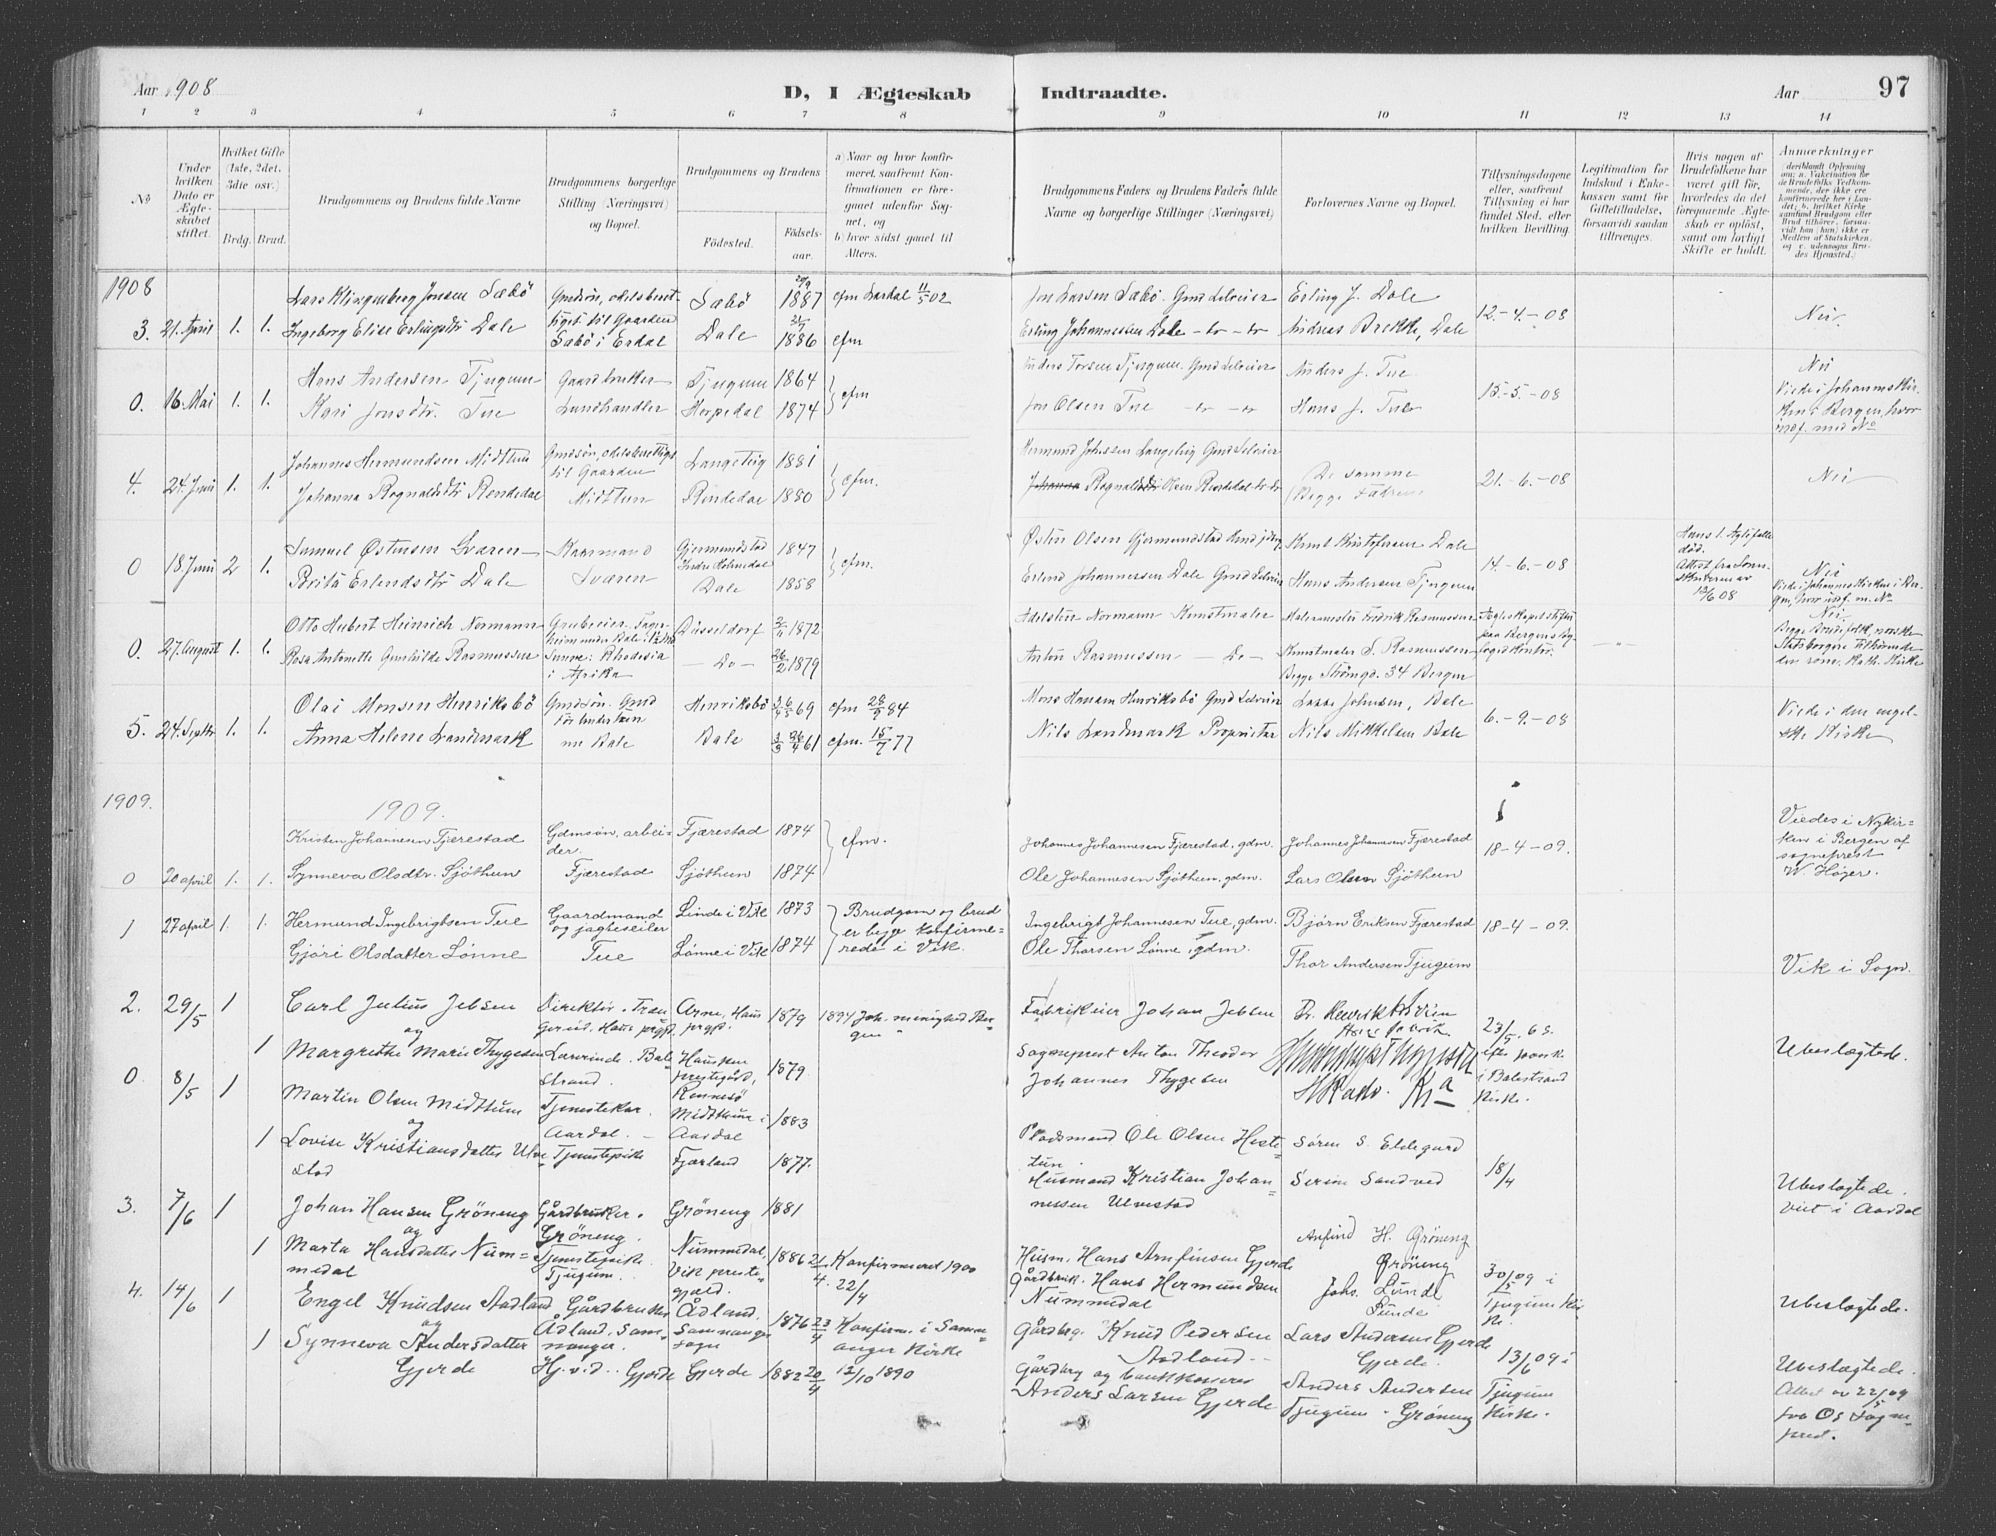 Aar 1908
D, I Ægteskab Indtraadte.
Aar
97
1 2 3 4 5 6 7 8 9 10 11 12 13 14
No
Under hvilken Dato er Ægteskabet stiftet.
Hvilket Gifte (1ste, 2det, 3die osv.)
Brdg. Brud.
Brudgommens og Brudens fulde Navne
Brudgommens borgerlige Stilling (Næringsvei) og Bopæl.
Brudgommens og Brudens
Födested.
Födselsaar.
a) Naar og hvor konfirmeret, saafremt Konfirmationen er foregaaet udenfor Sognet, og
b) hvor sidst gaaet til Alters.
Brudgommens Faders og Brudens Faders fulde Navne og borgerlige Stillinger (Næringsvei)
Forlovernes Navne og Bopæl.
Tillysningsdagene eller, saafremt Tillysning ei har fundet Sted, efter hvilken Bevilling.
Legitimation for Indskud i Enkekassen samt for Giftetilladelse, forsaavidt saadan tiltrænges.
Hvis nogen af Brudefolkene har været gift för, hvorledes da det foregaaende Ægteskab er oplöst, samt om lovligt Skifte er holdt.
Anmærkninger
1908
Lars Klingenberg Jensen Sæbö
Gmdsön, odelsberet-
Sæbö
1887
cfm Lardal 11/5 02
Jon Larsen Sæbö. Gmd Selveier
Erling J. Dale
3. 21. April 1. 1.
Ingeborg Elise Erlingsdtr Dale
tiget til Gaarden
Sæbö i Esdal
Dale
1886
cfm
Erling Johannessen Dale
Andreas Brekke, Dale
12.-4.-08
Nei.
Hans Andersen Tjugum
Gaardbruker
Tjugum
1864
Anders Torsen Tjugum. Gmd Selveier
Anders J. Tue
Nei
0. 16. Mai 1. 1.
Kari Jonsdtr. Tue
Landhandler
Herpedal
1874
cfm
Jon Olsen Tue
Hans J. Tue
15.-5.-08
Viede i Johanneskir-
ken i Bergen, hvor
indf. med No
Johannes Hermundsen Midttun
Gmdsön, odelsberettiget
til Gaarden
Langeteig
1881
4. 24. Juni 1. 1.
Johanna Rognaldsdtr Rendedal
Midttun
Rendedal
1880
cfm.
Rognald Olsen Rendedal
De samme
Begge Fædrene
21.-6.-08
Nei
Samuel Östensen Sværen
Kaarmand
Gjermundstad
Indre Holmedal
1847
Östen Olsen Gjermundstad
Knut Kristofersen Dale
Hans 1. Ægtefælle
död.
0 18. Juni 2 1.
Brita Erlendsdtr Dale
Sværen
Dale
1858
cfm.
Erlend Johannessen Dale Gmd Selveier
Hans Andersen Tjugum
14.-6.-08
13/6 08
Nei
Viede i Johanneskirken i Ber-
gen, hvor indf. m. No
Otto Hubert Heinrich Normann
Grubeeier
Düsseldorf
1872
Adelsten Normann Kunstmaler
Malermester Fredrik Rasmussen
Nei.
0. 27. August 1. 1.
Rosa Antonette Gunhilde Rasmussen
Rhodesia
i Afrika
Do
26/2 1879
Anton Rasmussen Do
Kunstmaler S. Rasmussen
Begge Strömgd. 34 Bergen
Begge Brudefolk norske
Statsborgere tilhörende
den rom. kath. Kirke
Olai Monsen Henriksbö
Gmdsön. Gmd
Henriksbö
69
cfm 28/9 84
Mons Hansen Henriksbö Gmd Selveier
Lasse Johnsen, Dale
5. 24. Septbr 1. 1.
Anna Helene Landmark
Dale
61
cfm. 15/7 77
Nils Landmark Proprietær
Nils Mikkelsen Dale
6.-9.-08
Viede i den engel-
ske Kirke
1909.
1909.
Kristen Johannesen Fjærestad
Gdmsön, arbei-
der.
Fjærestad
1874
cfm.
Johannes Johannesen Fjærestad, gdm.
Johannes Johannesen Fjærestad
18-4-09.
Viedes i Nykir-
ken i Bergen af
sogneprest
W. Höyer.
0 20 april 1. 1.
Synneva Olsdtr. Sjöthun
Fjærestad
Sjöthun
1874
Ole Johannesen Sjöthun, gdm.
Lars Olsen Sjöthun
1 27 april 1. 1.
Hermund Ingebrigtsen Tue
Gaardmand
og jagteseiler
Linde i Vik
1873
Brudgom og brud
er begge konfirme-
rede i Vik.
Ingebrigt Johannesen Tue, gdm.
Björn Eriksen Fjærestad
18-4-09.
Gjöri Olsdatter Lönne
Tue
Lönne i Vik
1874
Ole Thorsen Lönne, gdm.
Thor Andersen Tjugum
Vik i Sogn.
2. 29/5 1
Carl Julius Jebsen
og
Direktör.
Arne, Haus
prgjt.
1879
1894 Joh. menighed Ber-
gen
Fabrikeier Johan Jebsen
23/5
1
Margrethe Marie Thygesen
Bale-
strand.
prestegård,
Rennesö
1879
Sogneprest Anton Theodor
Johannes Thygesen
i Balestrand
Kirke.
Ubeslægtede.
0. 8/5 1
Martin Olsen Midttun
og
Tjenestekar.
Aardal.
Midttun i
Aardal
1883
Pladsmand Ole Olsen Heste-
tun.
Sören S. Eldegard
18/4
1
Lovise Kristiansdatter Ulve-
stad
Tjenestepike
Fjærland
1877.
Husmand Kristian Johan-
nessen Ulvestad
Serim Sandved
Ubeslægtede.
viet i Aardal
3. 7/6 1
Johan Hansen Gröneng
og
Gårdbruker.
Gröneng.
Gröneng
1881
Husm. Hans Arnfinsen Gjerde
Anfind H. Gröneng
Gröneng
30/5 09 i
Tjugum Kir-
ke.
1
Marta Hansdatter Num-
medal
Tjenestepike.
Tjugum.
Nummedal,
Vik preste-
gjeld.
1886 21/4
Konfirmeret 1900
22/4
Gårdbruk. Hans Hermundsen
Nummedal
Johs. Lunde
Lunde
Ubeslægtede.
4. 14/6 1
Engel Knudsen Aadland
og
Gårdbruker
Ådland, Sam-
nanger.
Ådland,
Samnanger
sogn
1876 23/4
Konfirm. i Samn-
anger Kirke
12/10 1890
Gårdbrg. Knud Pedersen
Aadland
Lars Andersen Gjerde
Gjerde.
13/6 09 i
Tjugum
Kirke.
1
Synneva Andersdatter
Gjerde
Hj. v. d. Gjerde
Gjerde
1882 20/4
Gårdbrg og bankkasserer
Anders Larsen Gjerde
Anders Andersen
Tjugum - Gröneng
Ubeslægtede.
Attest av 22/5 09
fra Os Sogne-
prest.